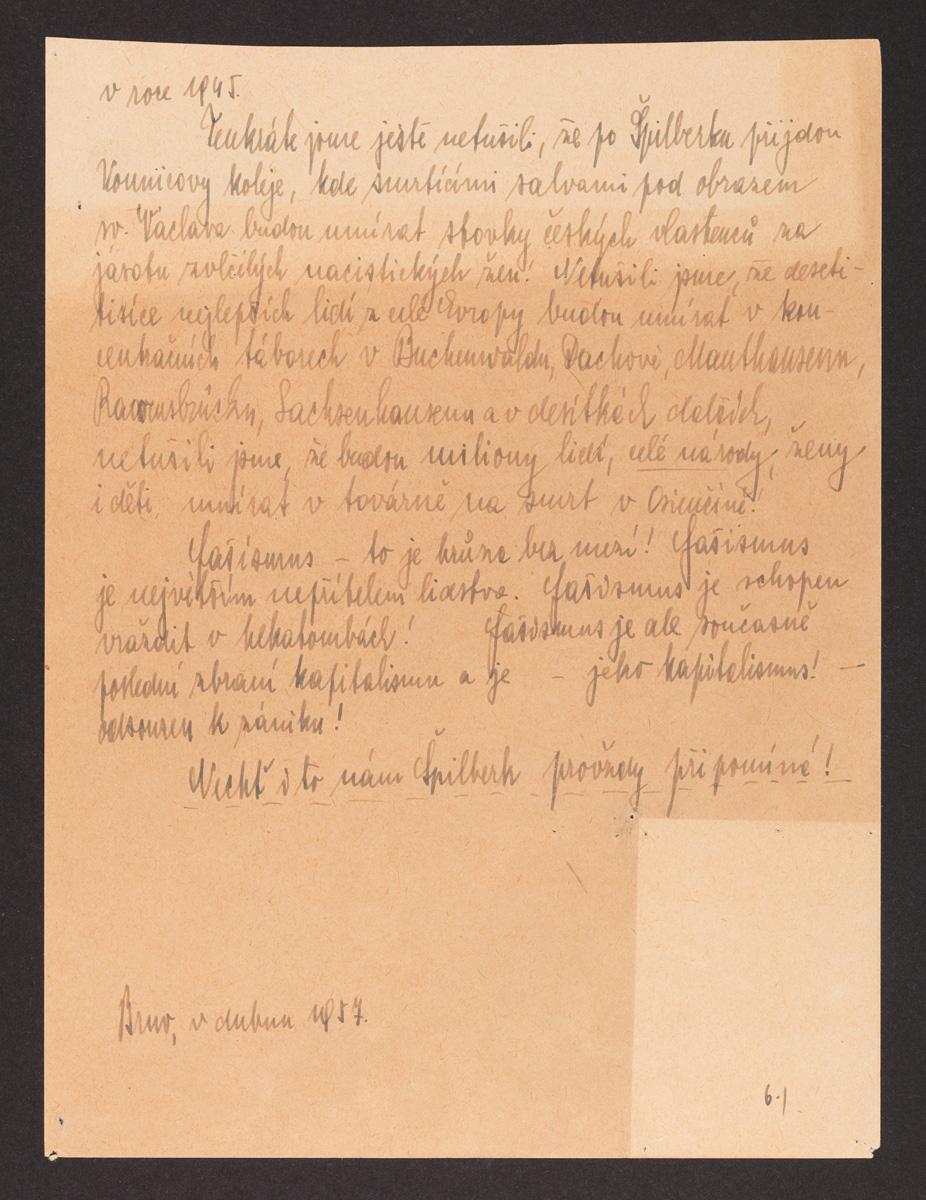 v roce 1945.
Tenkráte jsme ještě netušili, že po Špilberku přijdou
Kounicovy koleje, kde smrtícími salvami pod obrazem
sv. Václava budou umírat stovky českých vlastenců za
jásotu zvlčilých nacistických žen! Netušili jsme, že deseti-
tisíce nejlepších lidí z celé Evropy budou umírat v kon-
centračních táborech v Buchenwaldu, Dachově, Mauthausenu,
Ravensbrücku, Sachsenhausenu a v desítkách dalších,
netušili jsme, že budou miliony lidí, celé národy, ženy
i děti, umírat v továrně na smrt v Osvěčíně!
Fašismus – to je hrůza bez mezí! Fašismus
je největším nepřítelem lidstva. Fašismus je schopen
vraždit v hekatombách! Fašismus je ale současně
poslední zbraní kapitalismu a je – jako kapitalismus! –
odsouzen k zániku!
Nechť i to nám Špilberk provždy připomíná!
Brno, v dubnu 1957.
6.)